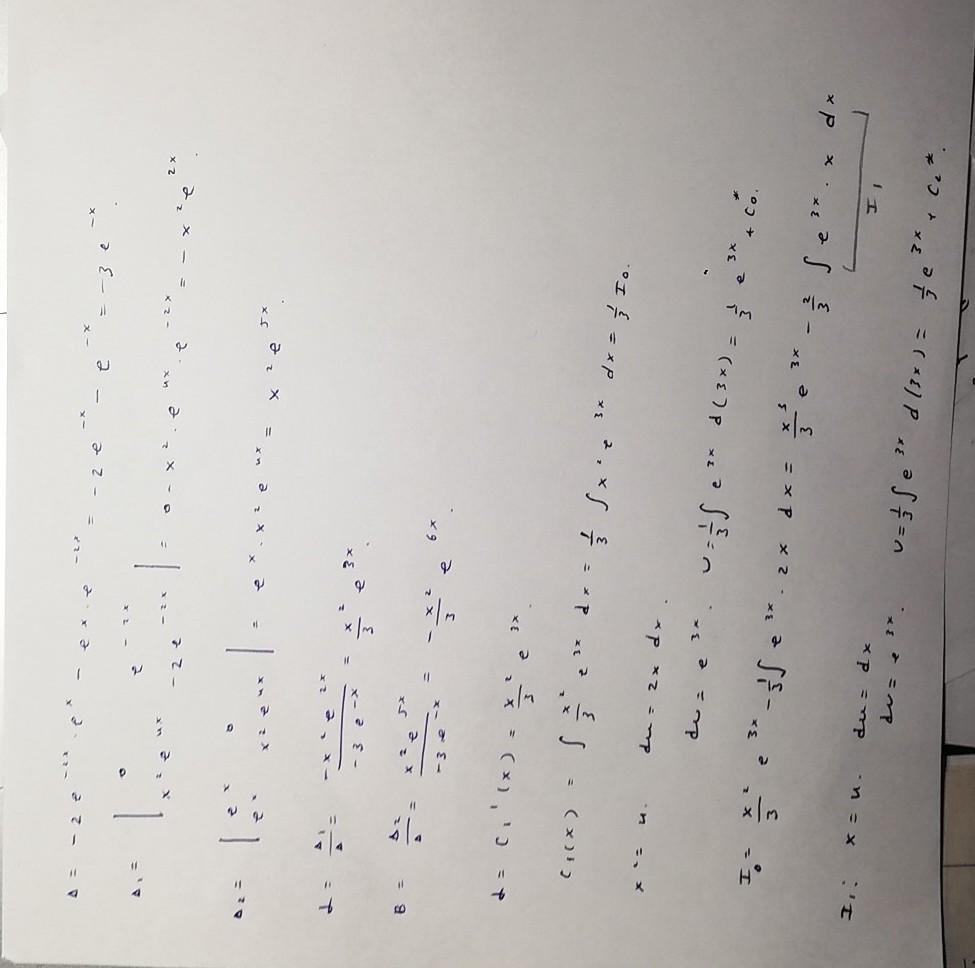 Δ = -2e^{-2x} · e^x - e^x · e^{-2x} = -2e^{-x} - e^{-x} = -3e^{-x}.
Δ₁ = | 0 e^{-2x} ; x²e^{4x} -2e^{-2x} | = 0 - x² · e^{4x} · e^{-2x} = -x²e^{2x}.
Δ₂ = | e^x 0 ; e^x x²e^{4x} | = e^x · x²e^{4x} = x²e^{5x}.
α = Δ₁/Δ = -x²e^{2x}/-3e^{-x} = x²/3 e^{3x}.
B = Δ₂/Δ = x²e^{5x}/-3e^{-x} = -x²/3 e^{6x}.
α = C₁'(x) = x²/3 e^{3x}.
C₁(x) = ∫ x²/3 e^{3x} dx = 1/3 ∫ x²e^{3x} dx = 1/3 I₀.
x² = u. du = 2x dx.
dv = e^{3x}. v = 1/3 ∫ e^{3x} d(3x) = 1/3 e^{3x} + C₀*.
I₀ = x²/3 e^{3x} - 1/3 ∫ e^{3x} · 2x dx = x³/3 e^{3x} - 2/3 ∫ e^{3x} · x dx
I₁
I₁: x = u. du = dx
dv = e^{3x}. v = 1/3 ∫ e^{3x} d(3x) = 1/3 e^{3x} + C₂*.